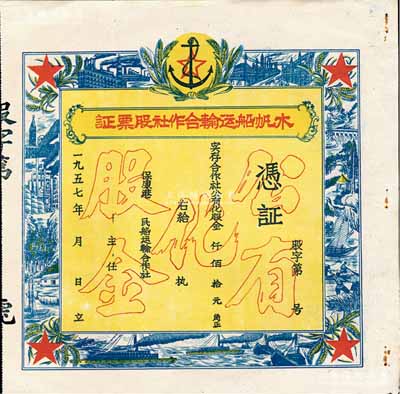 証票股社作合輸运船帆木
股字第 号
憑証
实存合作社公有化股金 仟 佰 拾 元 角正
右給 执
保康港 民船运輸合作社
主任
一九五七年 月 日立
公有化股金
股字第 号